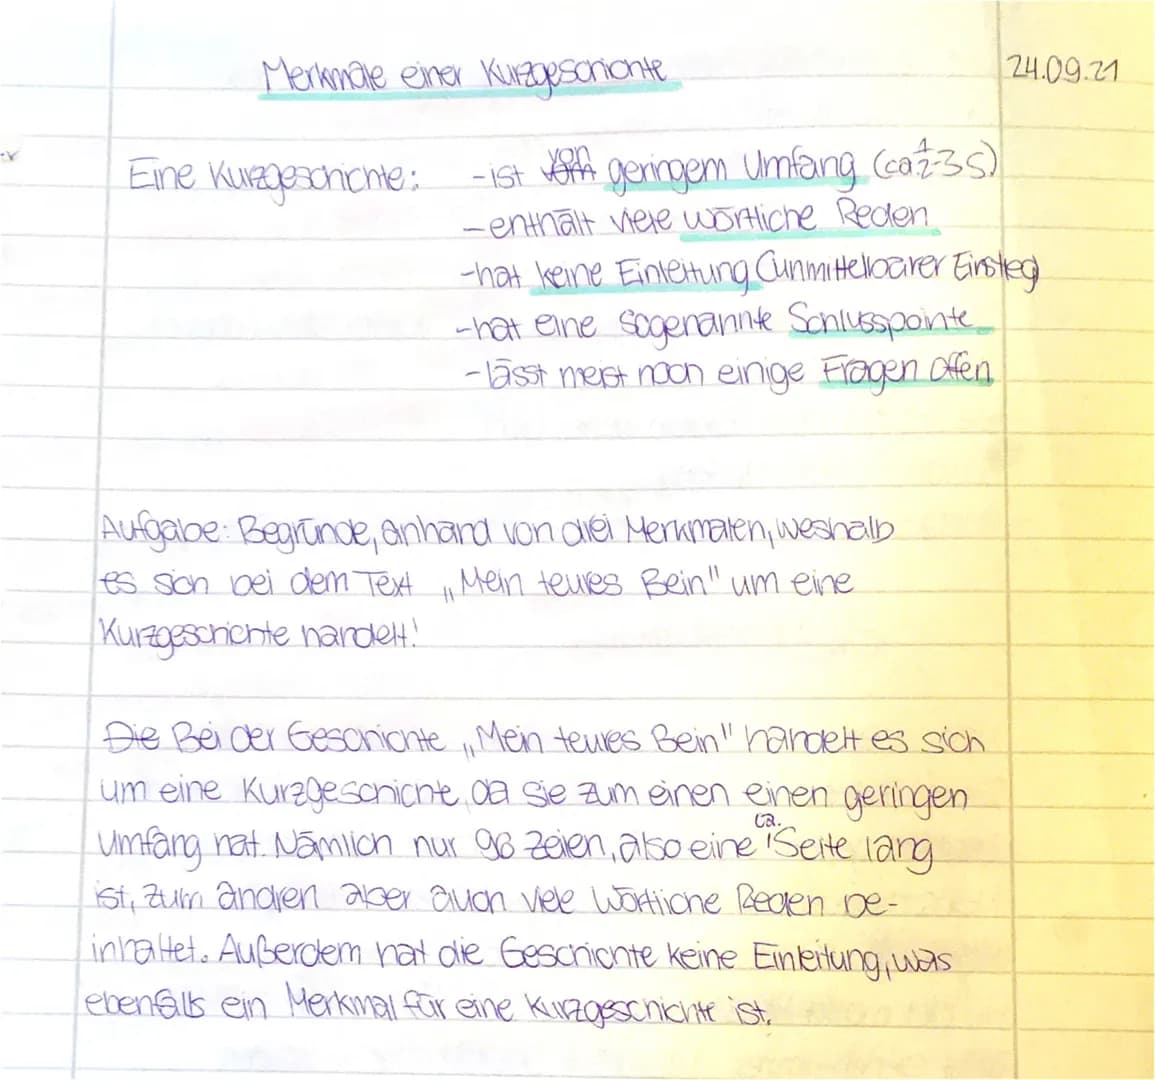 Merkmale einer Kurzgeschichte
24.09.21
Eine Kurzgeschichte: -ist von geringem Umfang (ca ½-3S)
-enthält viele wörtliche Reden
-hat keine Einleitung (unmittelbarer Einstieg)
-hat eine sogenannte Schlusspointe
-lässt meist noch einige Fragen offen
Aufgabe: Begründe, anhand von drei Merkmalen, weshalb
es sich bei dem Text „Mein teures Bein" um eine
Kurzgeschichte handelt!
Die Bei der Geschichte „Mein teures Bein" handelt es sich
um eine Kurzgeschichte, da sie zum einen einen geringen
Umfang hat. Nämlich nur 96 Zeilen, also eine ca. 1 Seite lang
ist, zum andren aber auch viele Wörtliche Reden be-
inhaltet. Außerdem hat die Geschichte keine Einleitung, was
ebenfalls ein Merkmal für eine Kurzgeschichte ist.